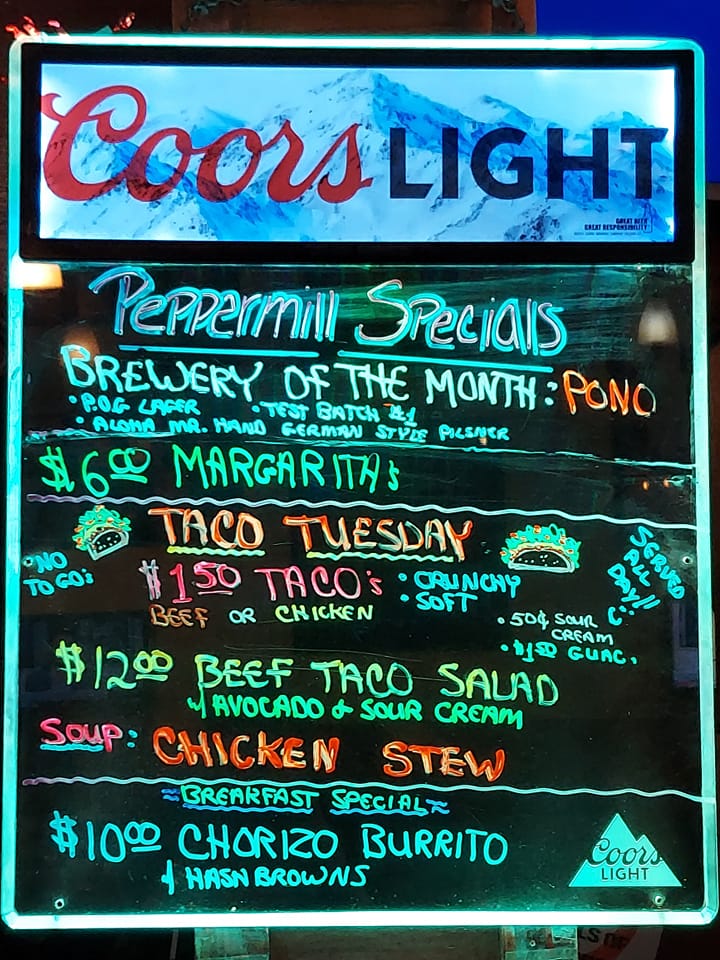 Coors LIGHT
GREAT BEER
GREAT RESPONSIBILITY
PEPPERMILL SPECIALS
BREWERY OF THE MONTH: PONO
• P.O.G LAGER • TEST BATCH #1
• ALOHA MR. HAND GERMAN STYLE PILSNER
$6.00 MARGARITA's
TACO TUESDAY
NO
TO GO's
SERVED
ALL
DAY!!
C:
$1.50 TACO's • CRUNCHY
• SOFT
BEEF OR CHICKEN
• 50¢ SOUR
CREAM
• $1.50 GUAC.
$12.00 BEEF TACO SALAD
w/ AVOCADO & SOUR CREAM
SOUP: CHICKEN STEW
≈BREAKFAST SPECIAL≈
$10.00 CHORIZO BURRITO
& HASHBROWNS
Coors
LIGHT